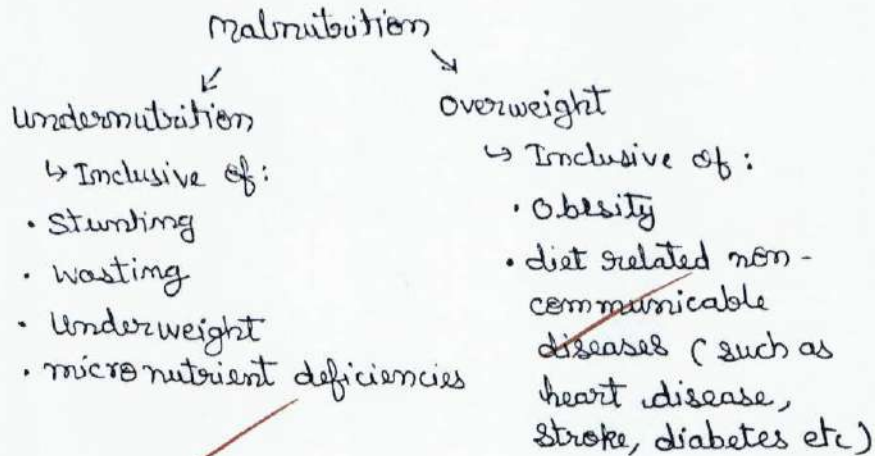 Malnutrition
Undernutrition
↳ Inclusive of:
• Stunting
• Wasting
• Underweight
• micronutrient deficiencies
Overweight
↳ Inclusive of:
• Obesity
• diet related non-
communicable
diseases (such as
heart disease,
stroke, diabetes etc)